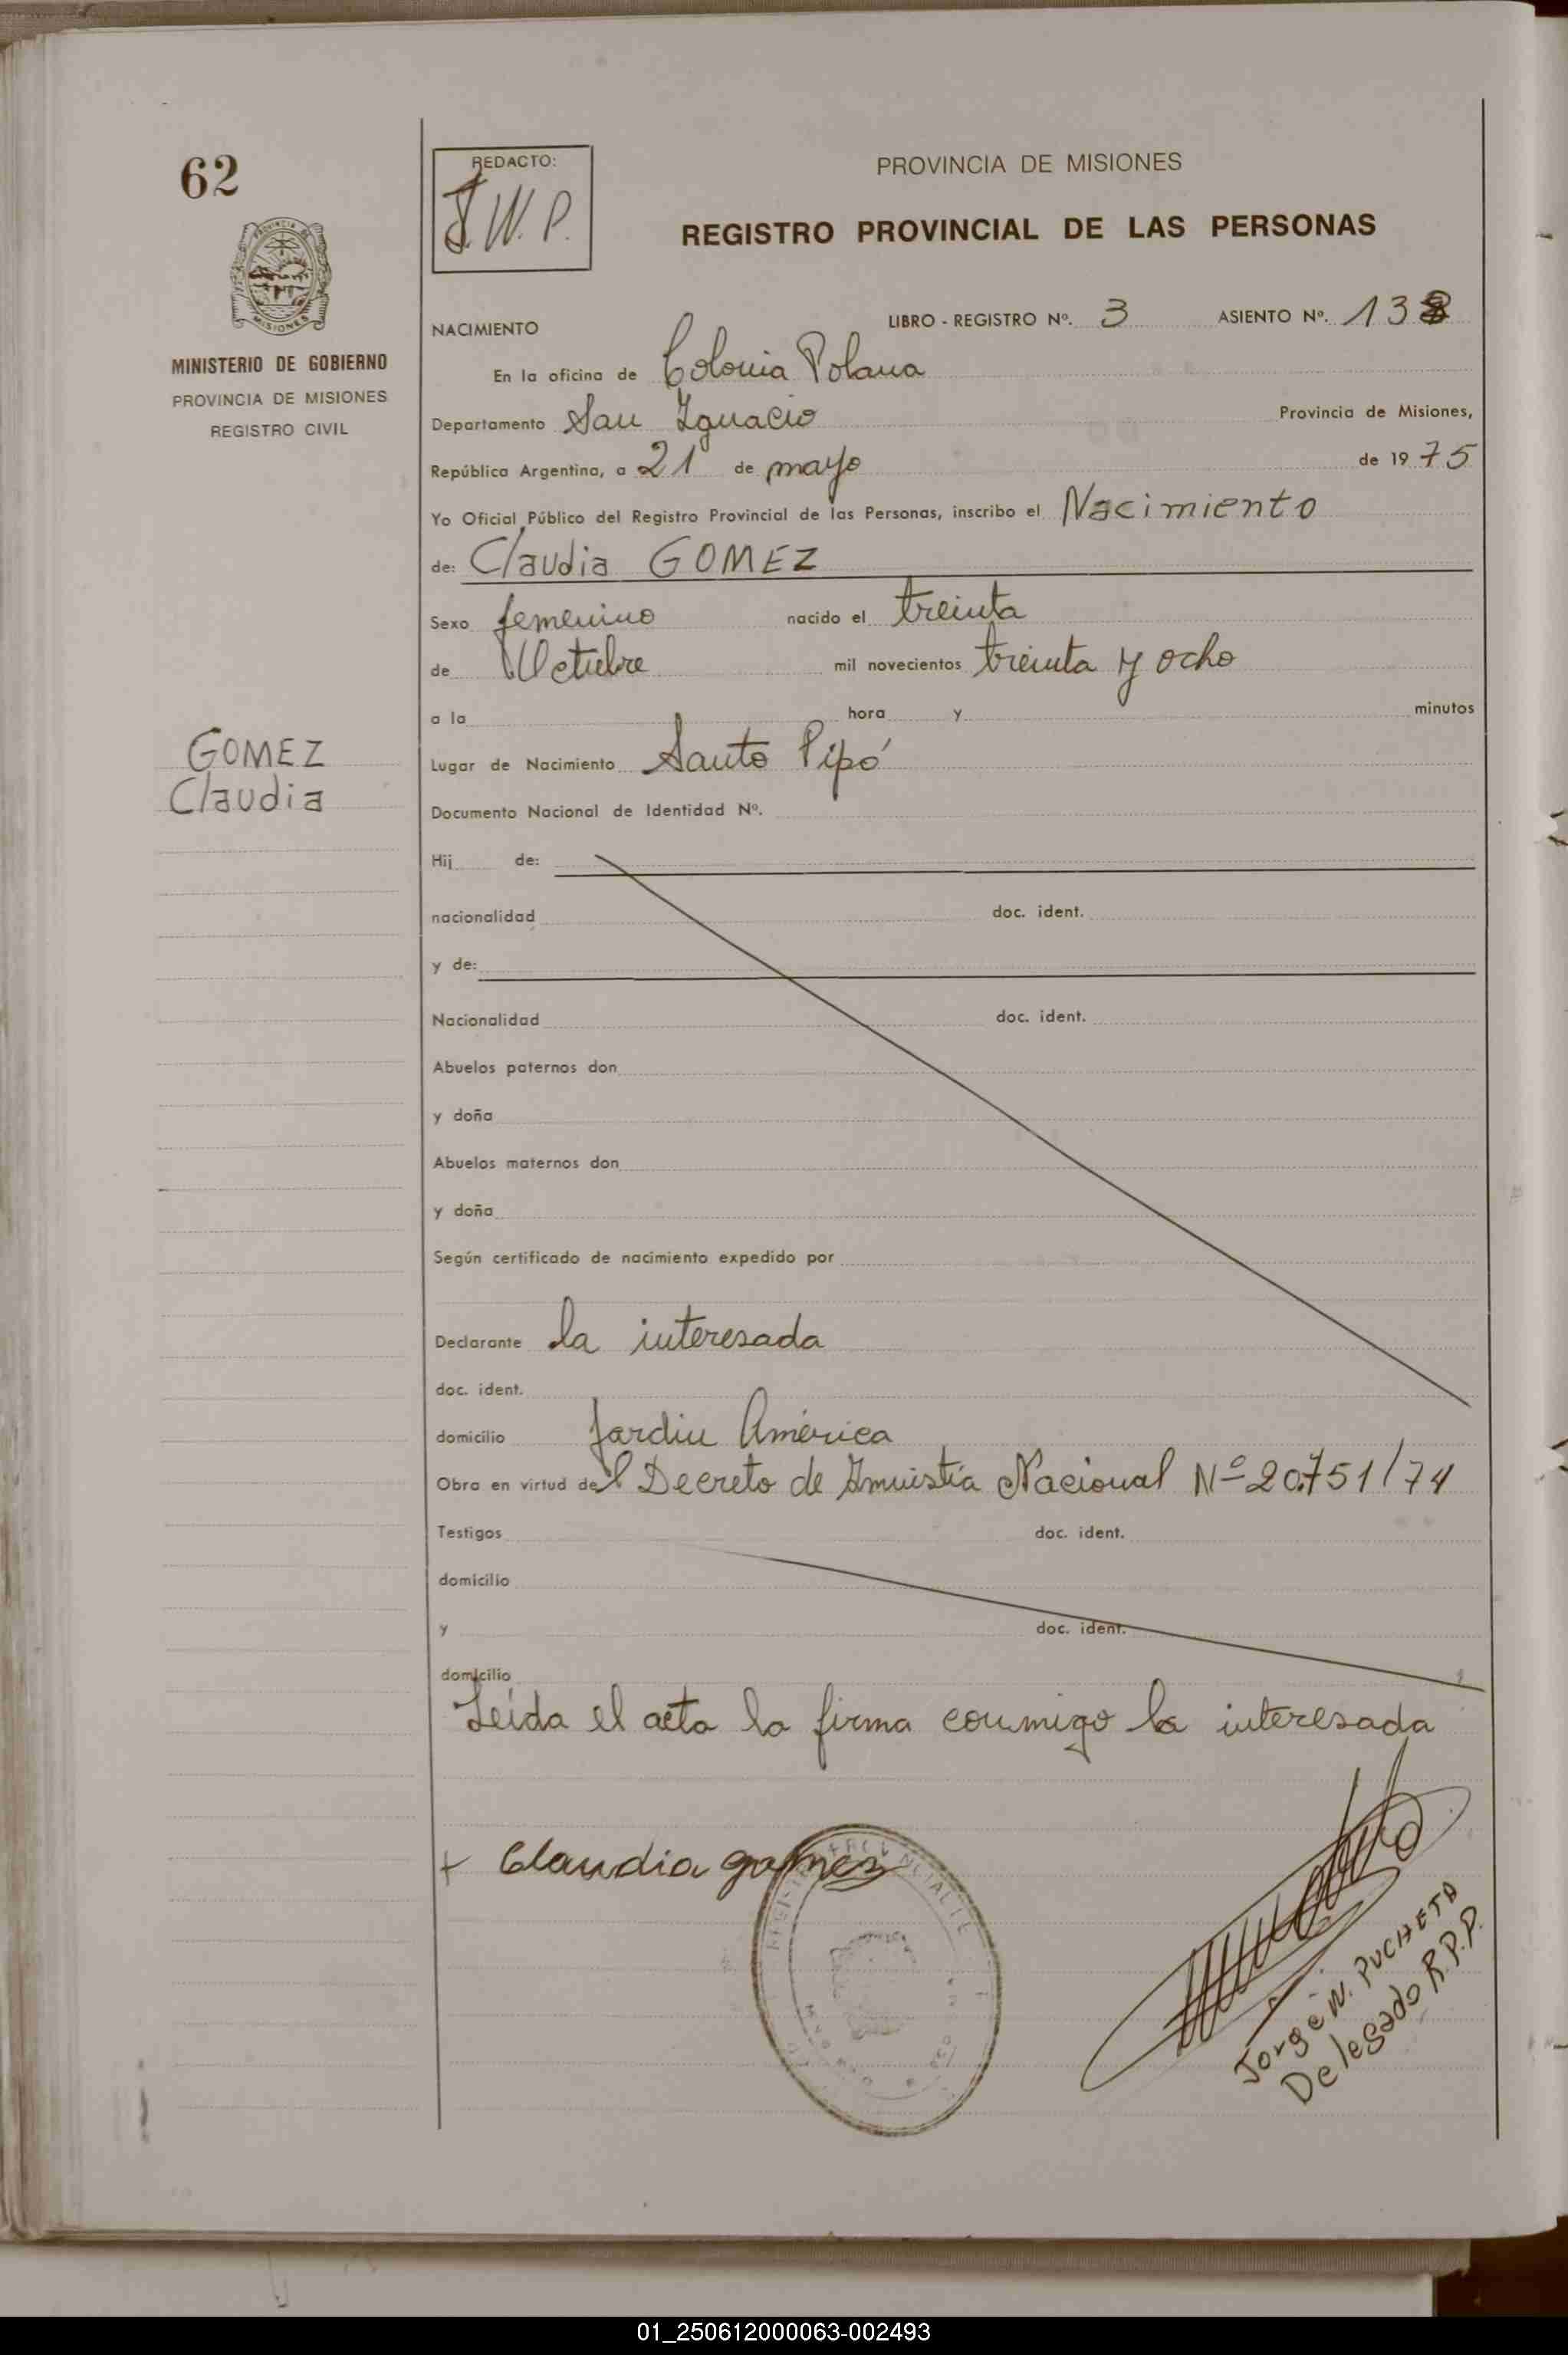 62
REDACTO:
J.W.P.
PROVINCIA DE MISIONES
REGISTRO PROVINCIAL DE LAS PERSONAS
MISIONES
MINISTERIO DE GOBIERNO
PROVINCIA DE MISIONES
REGISTRO CIVIL
NACIMIENTO LIBRO - REGISTRO Nº. 3 ASIENTO Nº. 138
En la oficina de Colonia Polana
Departamento San Ignacio Provincia de Misiones,
República Argentina, a 21 de mayo de 1975
Yo Oficial Público del Registro Provincial de las Personas, inscribo el Nacimiento
de: Claudia GOMEZ
Sexo femenino nacido el treinta
de Octubre mil novecientos treinta y ocho
a la hora y minutos
GOMEZ
Claudia
Lugar de Nacimiento Santo Pipó
Documento Nacional de Identidad Nº.
Hij de:
nacionalidad doc. ident.
y de:
Nacionalidad doc. ident.
Abuelos paternos don
y doña
Abuelos maternos don
y doña
Según certificado de nacimiento expedido por
Declarante la interesada
doc. ident.
domicilio Jardin América
Obra en virtud del Decreto de Amnistía Nacional Nº 20.751/74
Testigos doc. ident.
domicilio
y doc. ident.
domicilio
Leída el acta la firma conmigo la interesada
+ Claudia gomez
Jorge W. PUCHETA
Delegado R.P.P.
01_250612000063-002493